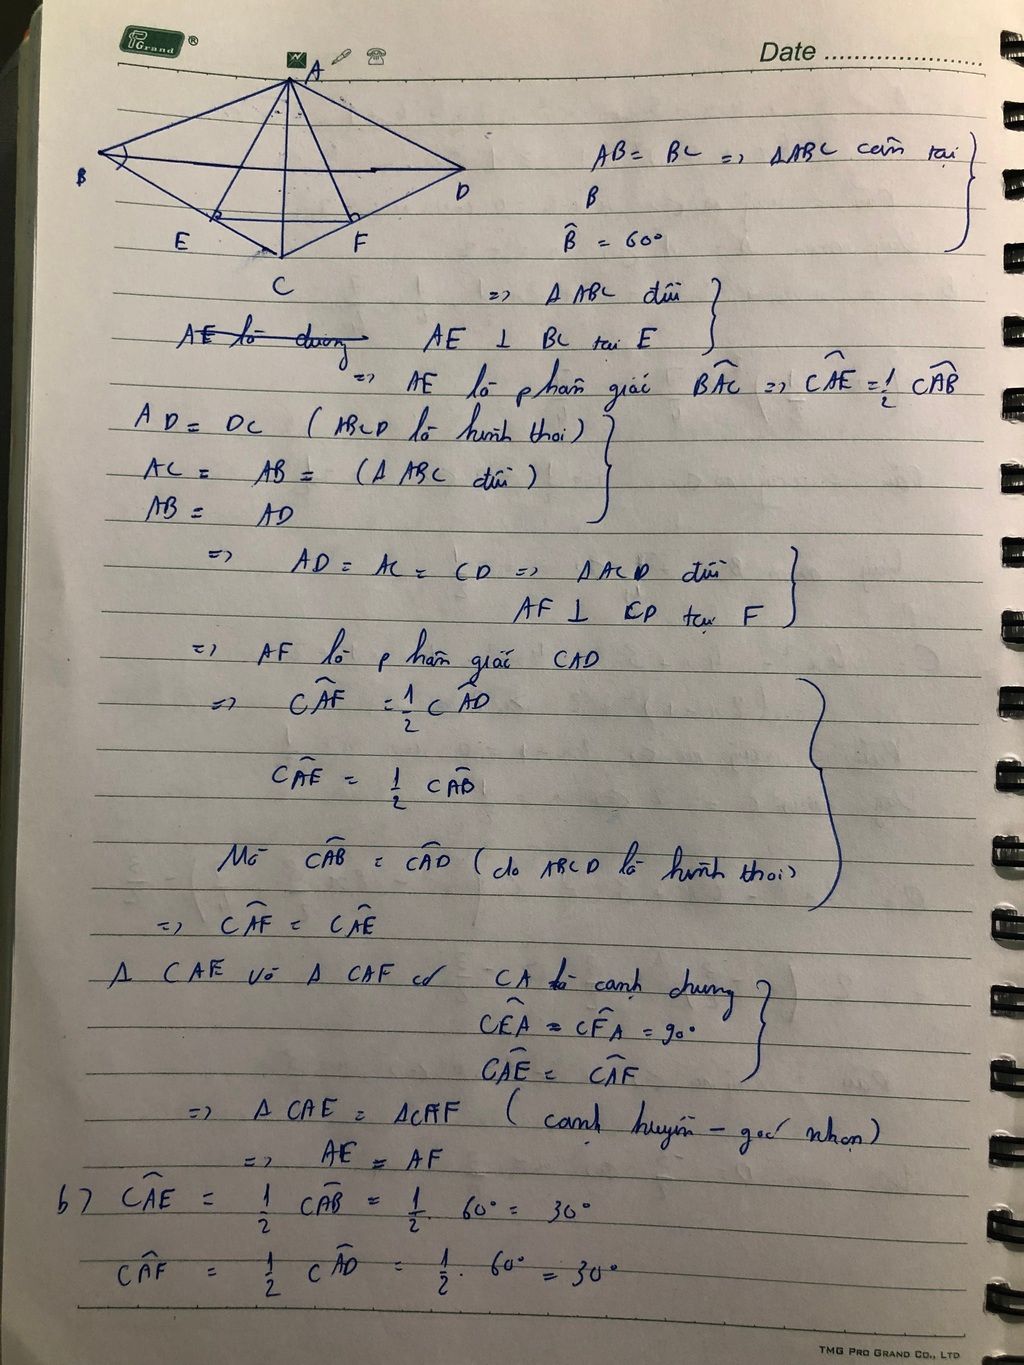 PGrand ®
Date
A
B
D
E
F
C
AB = BC => Δ ABC cân tại
B
B̂ = 60°
=> Δ ABC đều
AE là đường AE ⊥ BC tại E
=> AE là phân giác BÂC => CÂE = 1/2 CÂB
AD = DC (ABCD là hình thoi)
AC = AB = (Δ ABC đều)
AB = AD
=> AD = AC = CD => Δ ACD đều
AF ⊥ CD tại F
=> AF là phân giác CAD
=> CÂF = 1/2 CÂD
CÂE = 1/2 CÂB
Mà CÂB = CÂD (do ABCD là hình thoi)
=> CÂF = CÂE
Δ CAE và Δ CAF có CA là cạnh chung
CÊA = CF̂A = 90°
CÂE = CÂF
=> Δ CAE = Δ CAF (cạnh huyền - góc nhọn)
=> AE = AF
b) CÂE = 1/2 CÂB = 1/2 . 60° = 30°
CÂF = 1/2 CÂD = 1/2 . 60° = 30°
TMG PRO GRAND CO., LTD